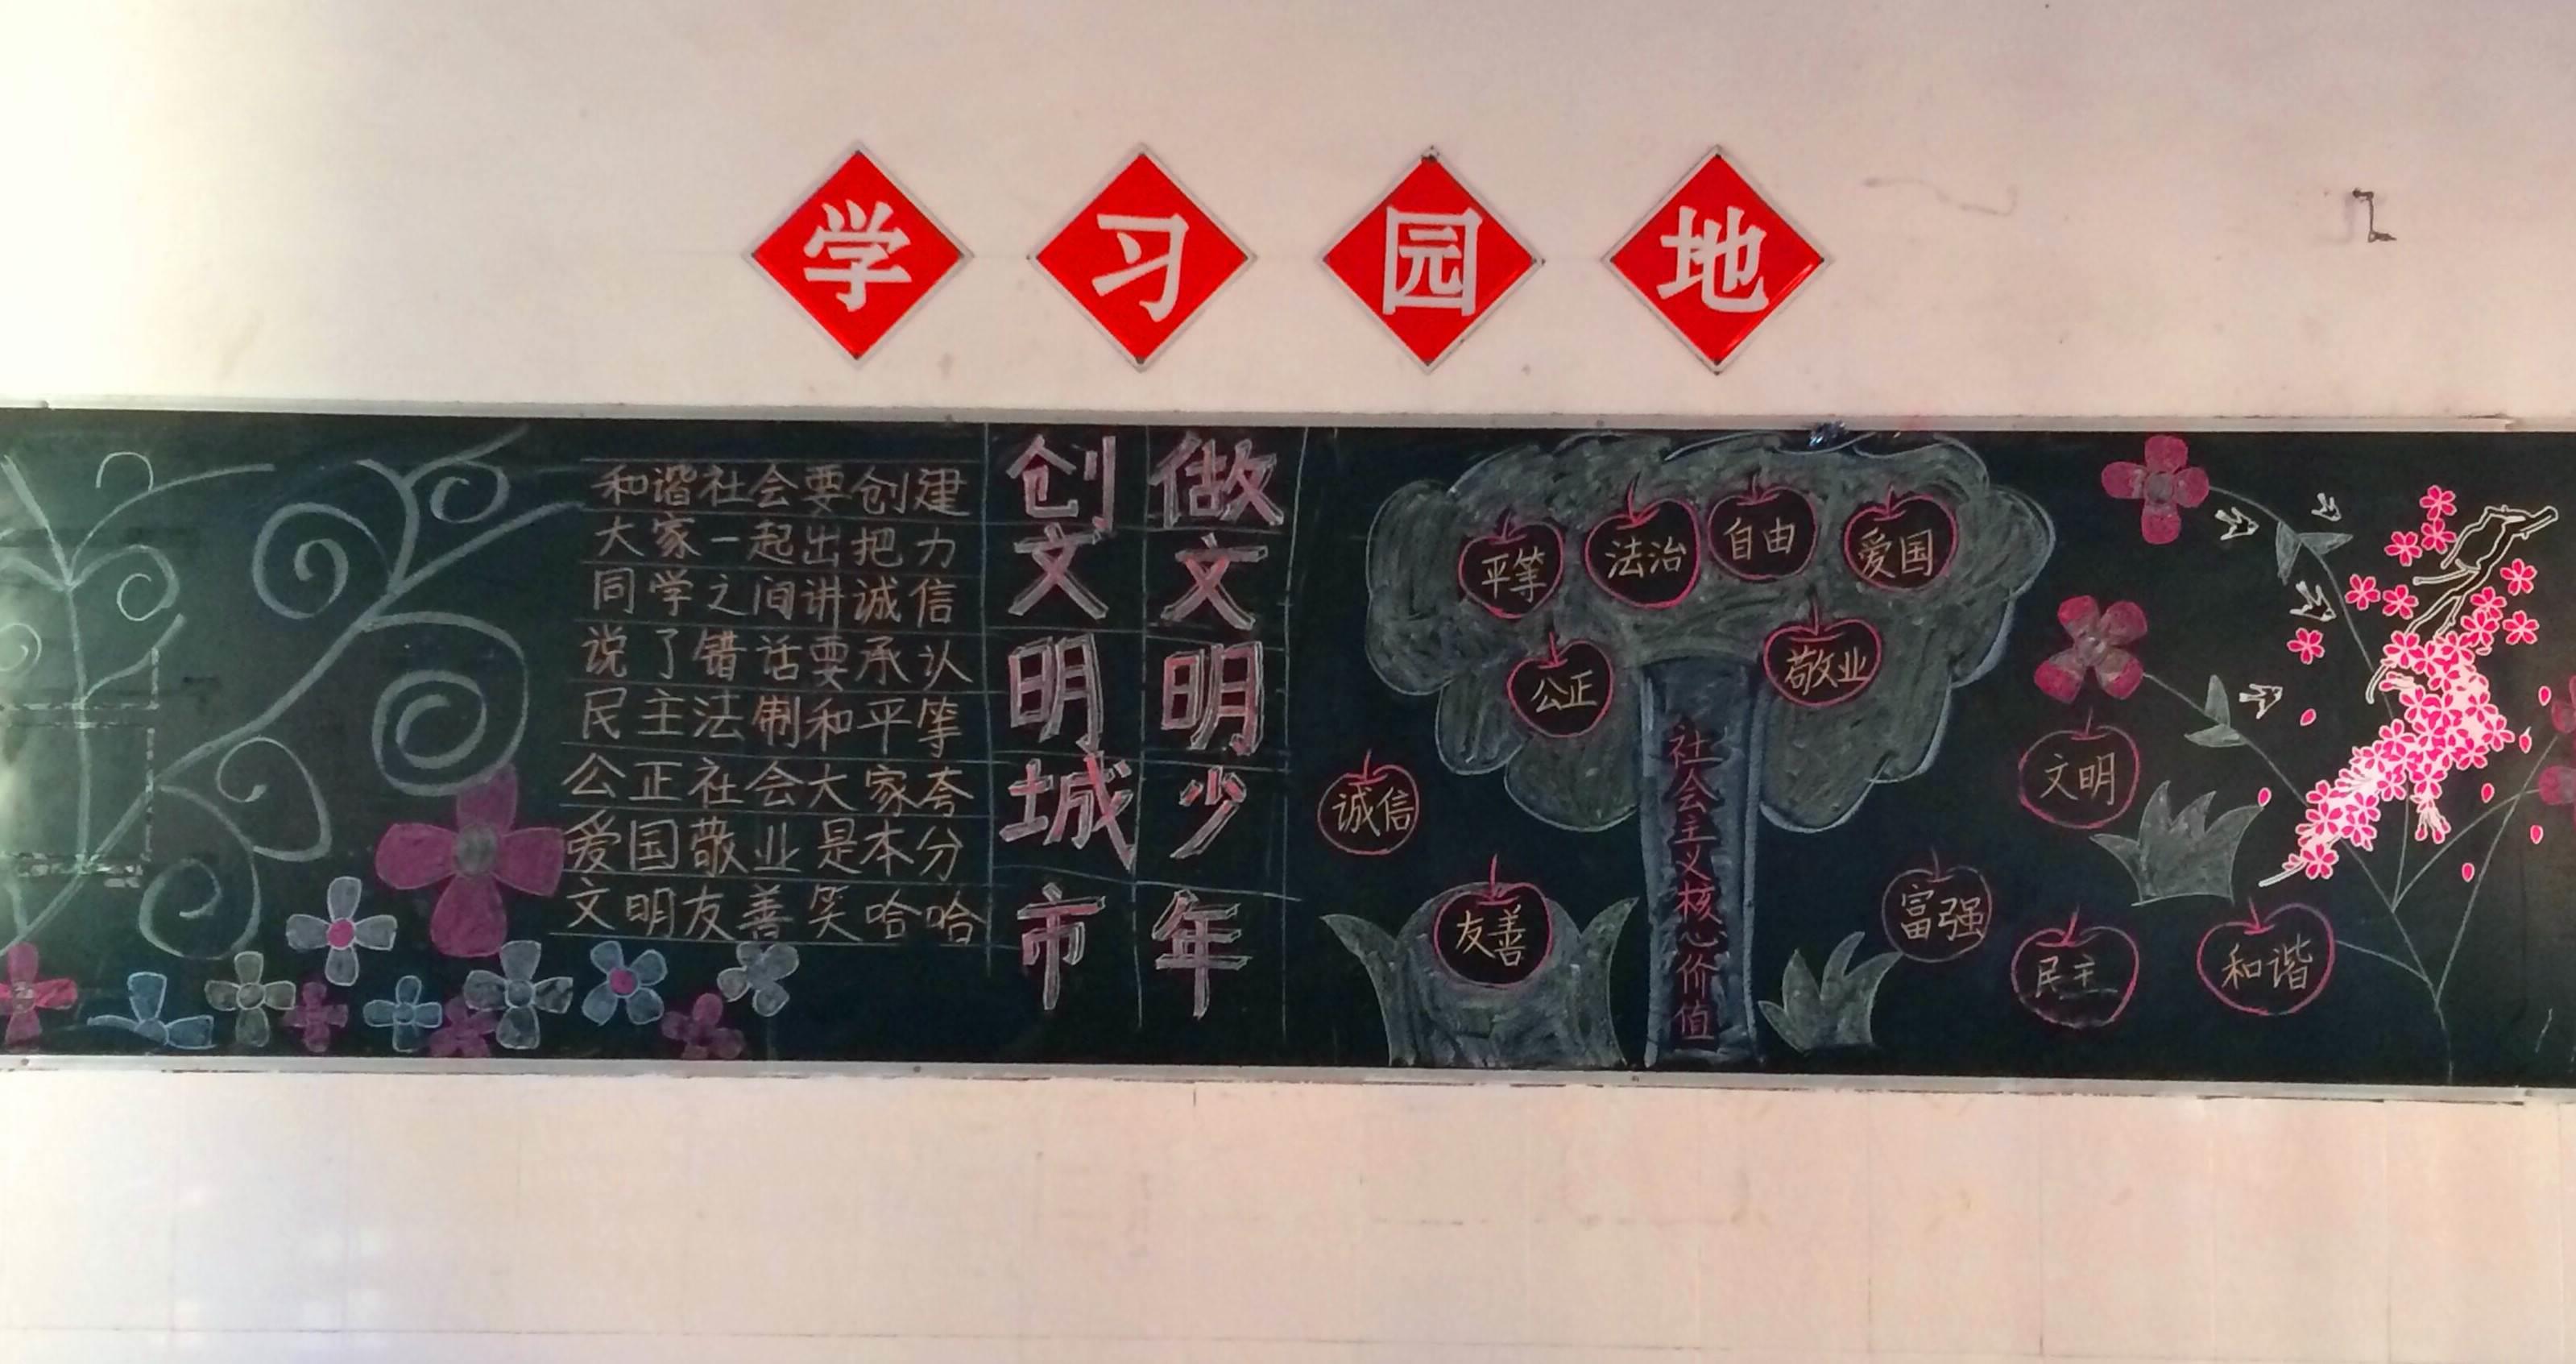 学习园地
和谐社会要创建
大家一起出把力
同学之间讲诚信
说了错话要承认
民主法制和平等
公正社会大家夸
爱国敬业是本分
文明友善笑哈哈
创文明城市
做文明少年
平等
法治
自由
爱国
公正
敬业
诚信
友善
社会主义核心价值
文明
富强
民主
和谐